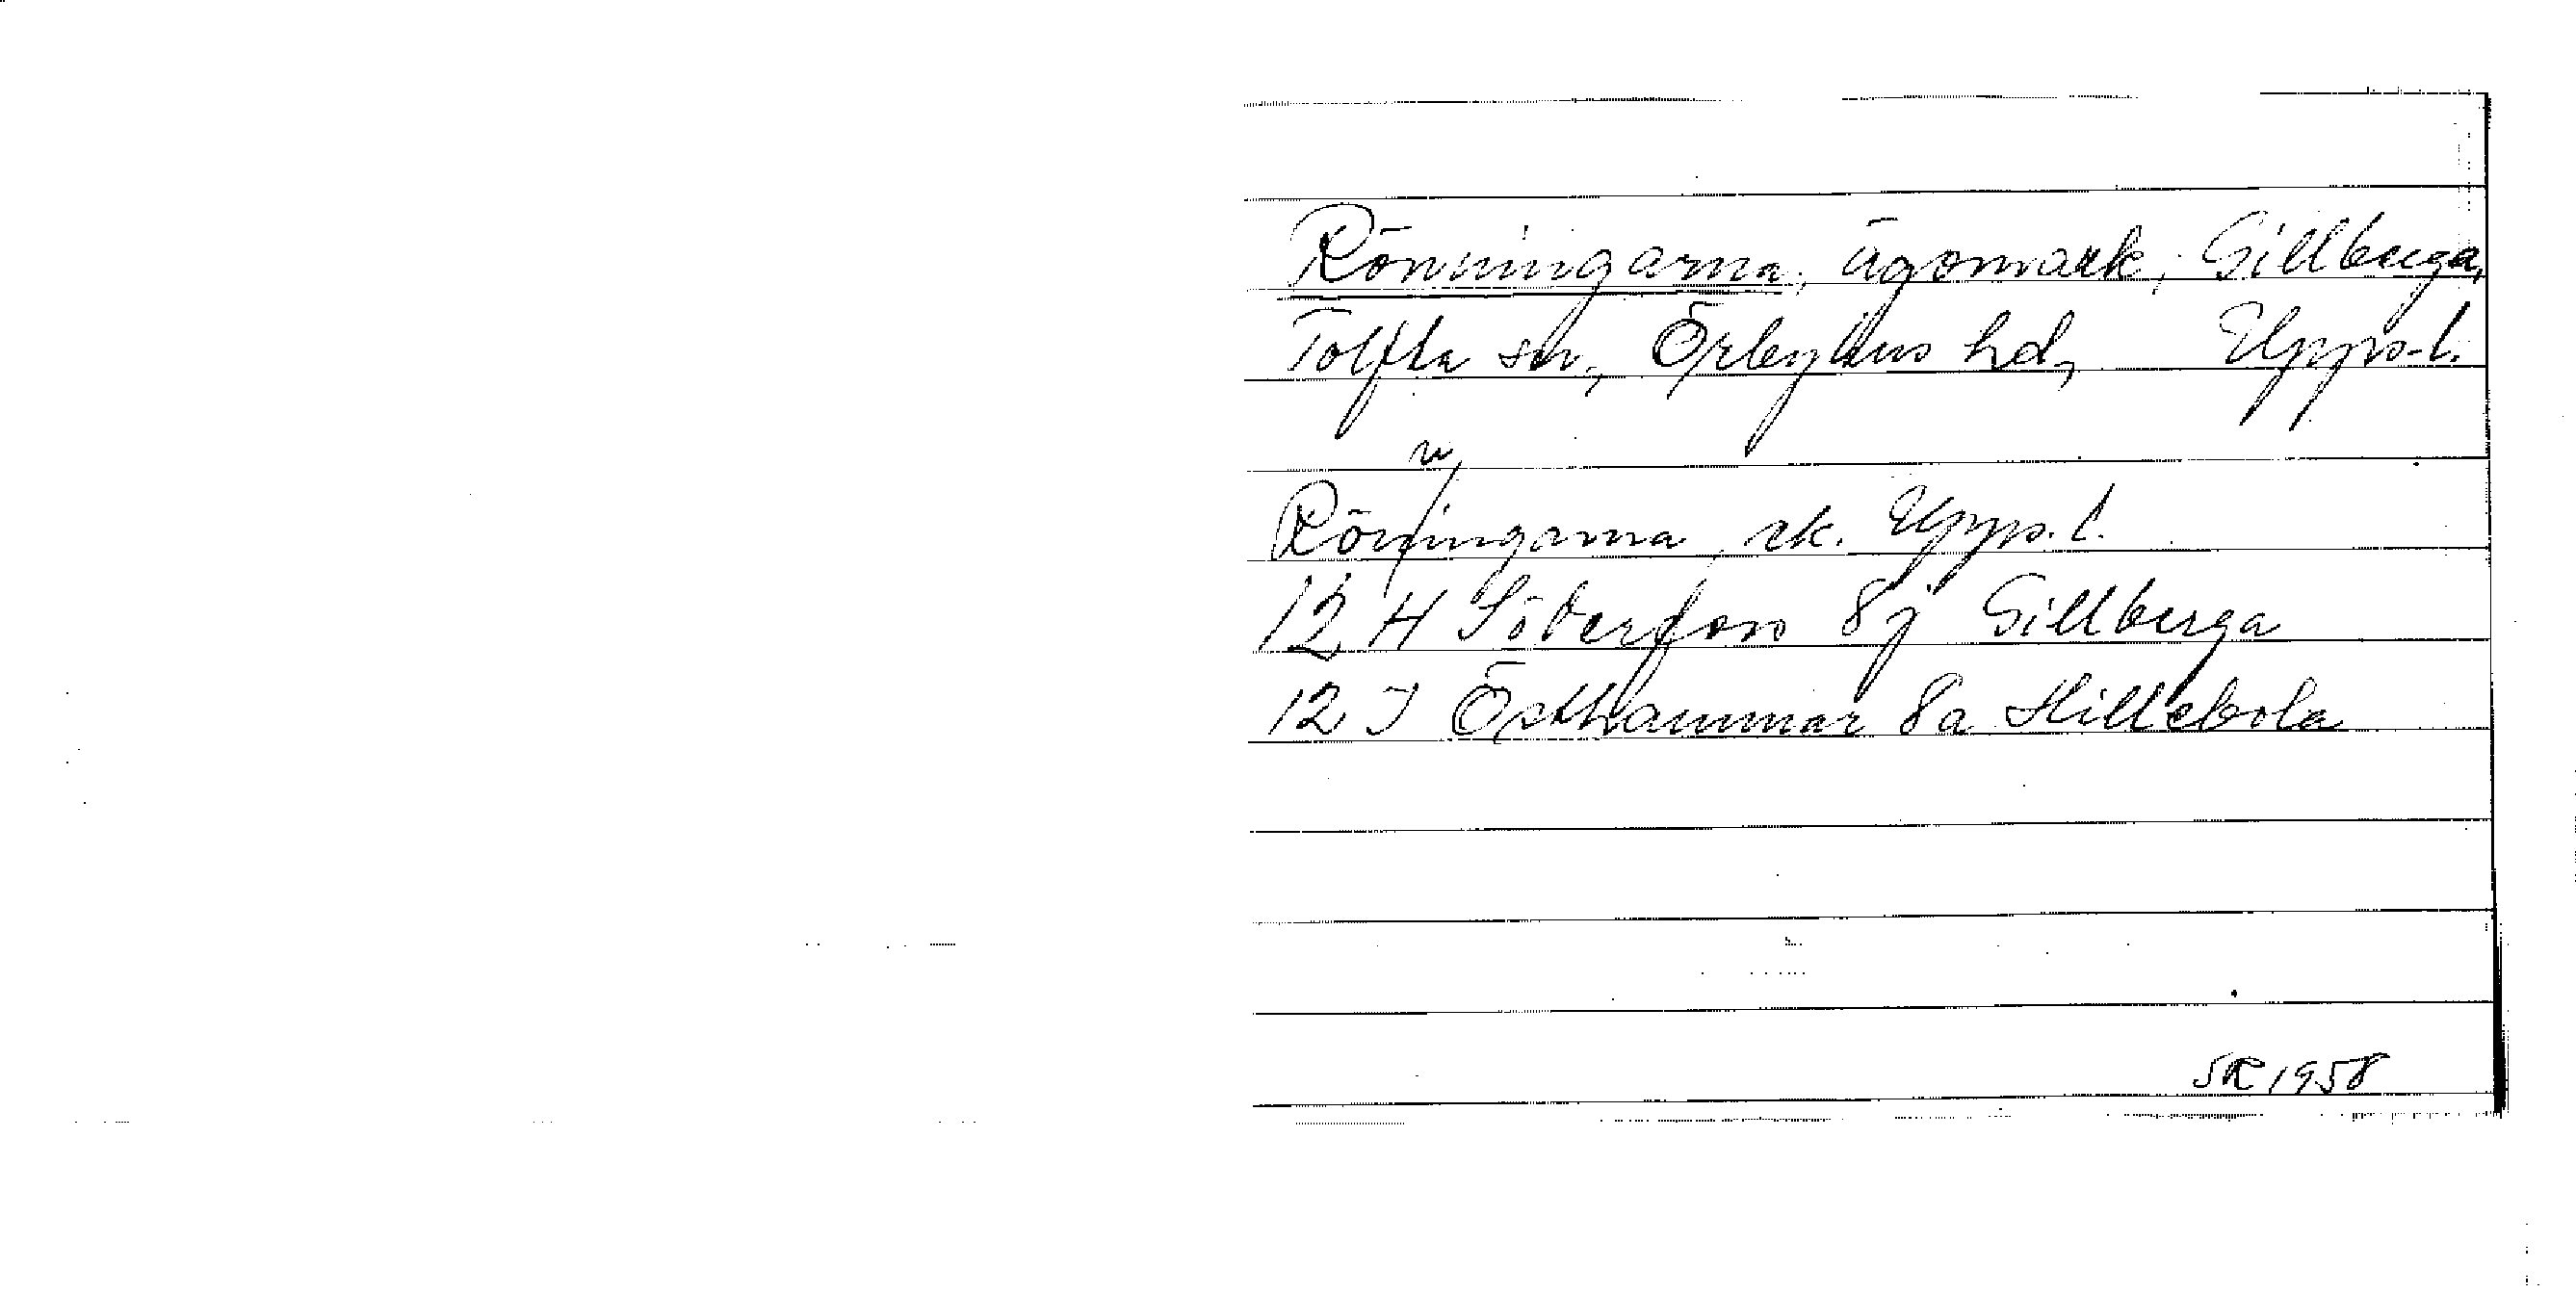 Rönningarna, ägomark, Gillberga,
Tolfta sn., Örbyhus hd, Upps.l.
n
Röningarna, ek. Upps. l.
12 H Söderfors 8j Gillberga
12 I Östhammar 8a Hillebola
SR 1958